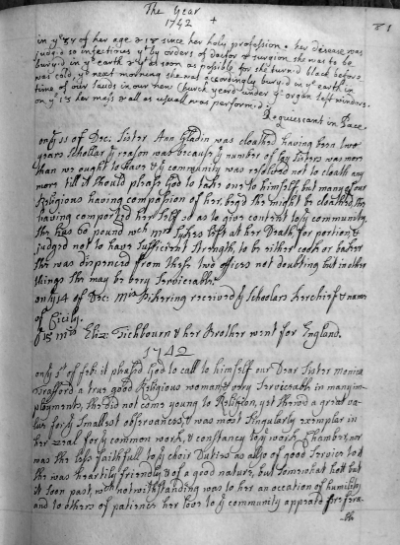 The Year
1742
in ye of her age & 18 since her holy profession. her decease was
judg'd so infectious yt by orders of doctor & surgion she was to be
bury'd in ye earth & yt as soon as possible, for she turn'd black before
was cold, ye next morning she was accordingly bury'd in ye earth in
time of our lauds in our new Church yard under ye organ left window.
on ye 1st her mass & all as usuall was perform'd.
Requiescant in Pace.
on ye 11 of Dec: Sister Ann Gladin was cloathed having been two
years Schollar ye reason was becaus ye number of lay sisters was more
than we ought to have & ye community was resolved not to cloath any
more till it should pleas God to take one to himself, but many of our
Religious having compasion of her, beg'd she might be cloathed, she
having comported her self so as to give content to ye community.
She has 60 pound wch Mrs left at her Death for portion &
judged not to have sufficient strength, to be either cook or baker
she was dispenced from these two offices not doubting but in other
things she may be very serviceable.
on ye 14 of Dec: Miss Pickering received ye Schoolars kerchief & name
of Cicily.
ye 15 Mrs Eliz: Tichbourn & her Brother went for England.
1742
on ye 1st of feb: it pleased God to call to himself our Dear Sister Monica
Trafford a true good Religious woman & very serviceable in many im-
ployments, she did not come young to Religion, yet she had a great va-
lue for ye smallest observances, & was most singularly exemplar in
her zeal for ye common work, & constancy to ye work Chamber, nor
was she less faithfull to ye choir Duties as also of good service to it
she was heartily friendly & of a good nature, but somewhat hott but
it soon past, wch notwithstanding was to her an occation of humility
and to others of patience her love to ye community appear'd